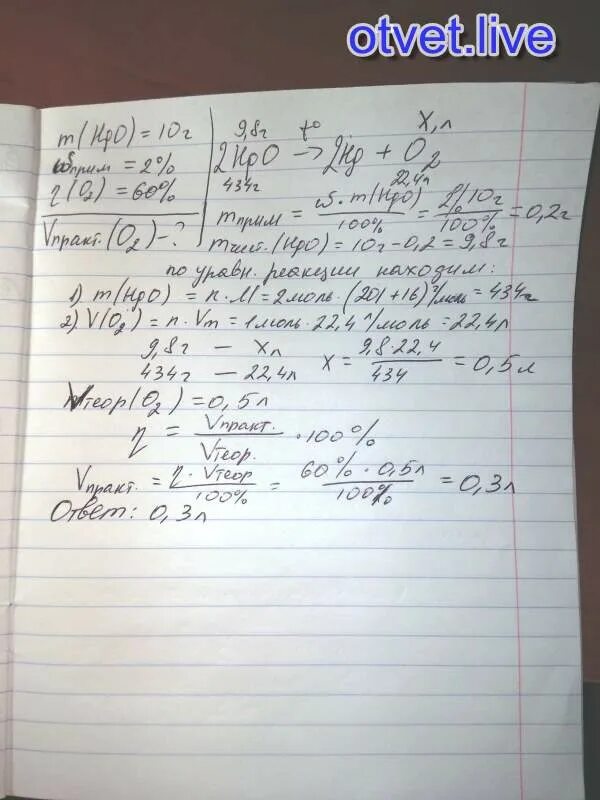 otvet.live
m(HgO) = 10г
ωприм = 2%
η(O₂) = 60%
Vпракт.(O₂) - ?
9,8г t° X,л
2HgO → 2Hg + O₂
434г 22,4л
mприм = ω·m(HgO)/100% = 2%·10г/100% = 0,2г
mчист.(HgO) = 10г - 0,2 = 9,8г
по уравн. реакции находим:
1) m(HgO) = n·M = 2моль·(201+16)г/моль = 434г
2) V(O₂) = n·Vm = 1моль·22,4л/моль = 22,4л
9,8г — Xл
434г — 22,4л X = 9,8·22,4/434 = 0,5л
Vтеор(O₂) = 0,5л
η = Vпракт./Vтеор. · 100%
Vпракт. = η·Vтеор/100% = 60%·0,5л/100% = 0,3л
Ответ: 0,3л